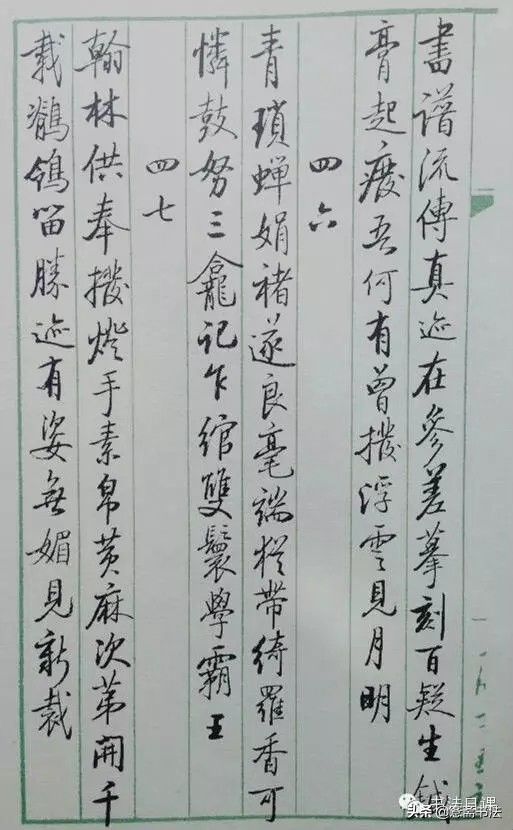 書譜流傳真迹在參差摹刻百疑生鍼
膏起癈吾何有曾撥浮雲見月明
四六
青瑣蟬娟褚遂良毫端猶帶綺羅香可
憐鼓努三龕記乍綰雙鬟學霸王
四七
翰林供奉撥燈手素帛黄麻次第開千
載鶺鴒留勝迹有姿無媚見新裁
书法日课